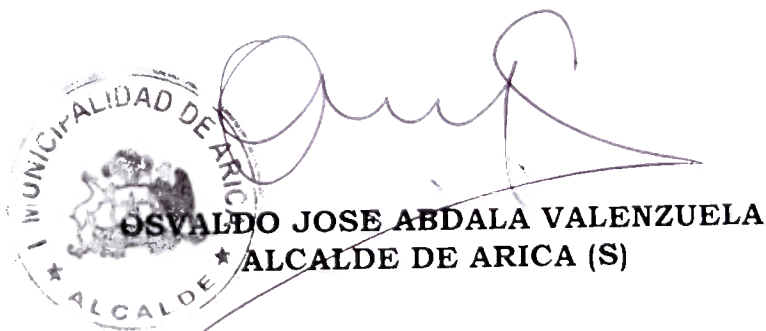 I MUNICIPALIDAD DE ARICA
★ ALCALDE ★
OSVALDO JOSE ABDALA VALENZUELA
ALCALDE DE ARICA (S)